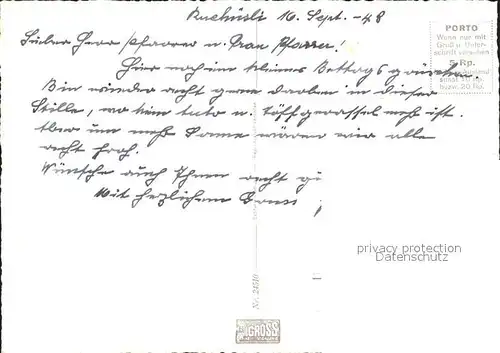 Ruehüsli 16. Sept. -48
Lieber Herr Pfarrer u. Frau Pfarrer!
Hier noch ein kleines Bettags
Bin wieder recht gerne daroben in dieser
Stille, wo kein Auto u. Töffgerassel mehr ist.
Aber um mehr Sonne wären wir alle
recht froh.
Wünsche auch Ihnen recht
Mit herzlichem Gruss
PORTO
Wenn nur mit
Gruß u. Unter-
schrift versehen
5 Rp.
bzw. 20 Rp.
privacy protection
Datenschutz
GROSS